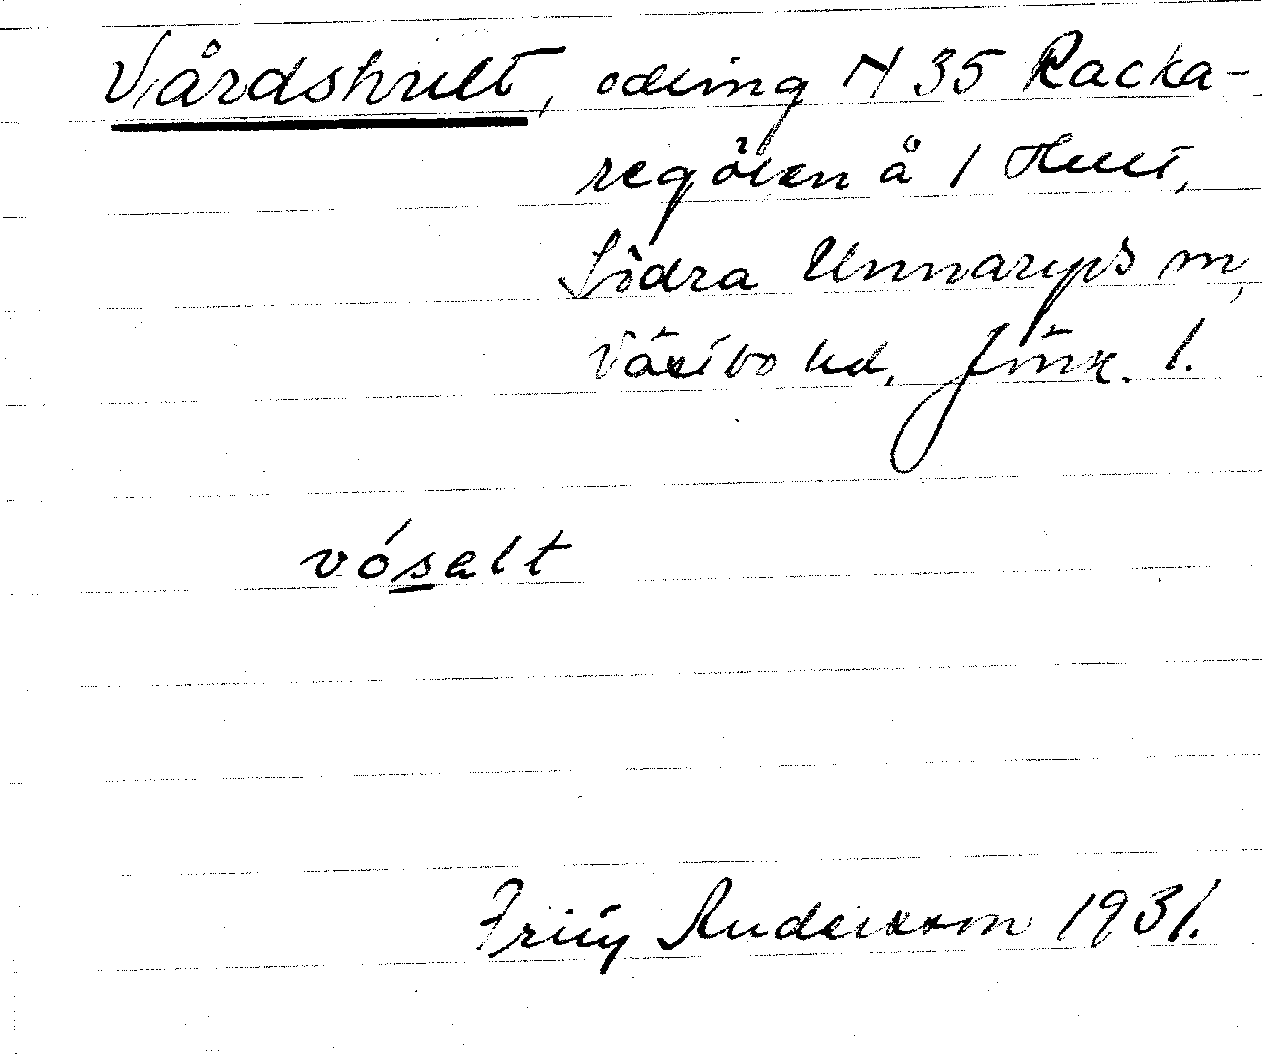 Vårdshult, odling N 35 Racka-
regölen å 1 Hult,
Södra Unnaryps sn,
Västbo hd, Jönk. l.
vósalt
Fritiof Andersson 1931.